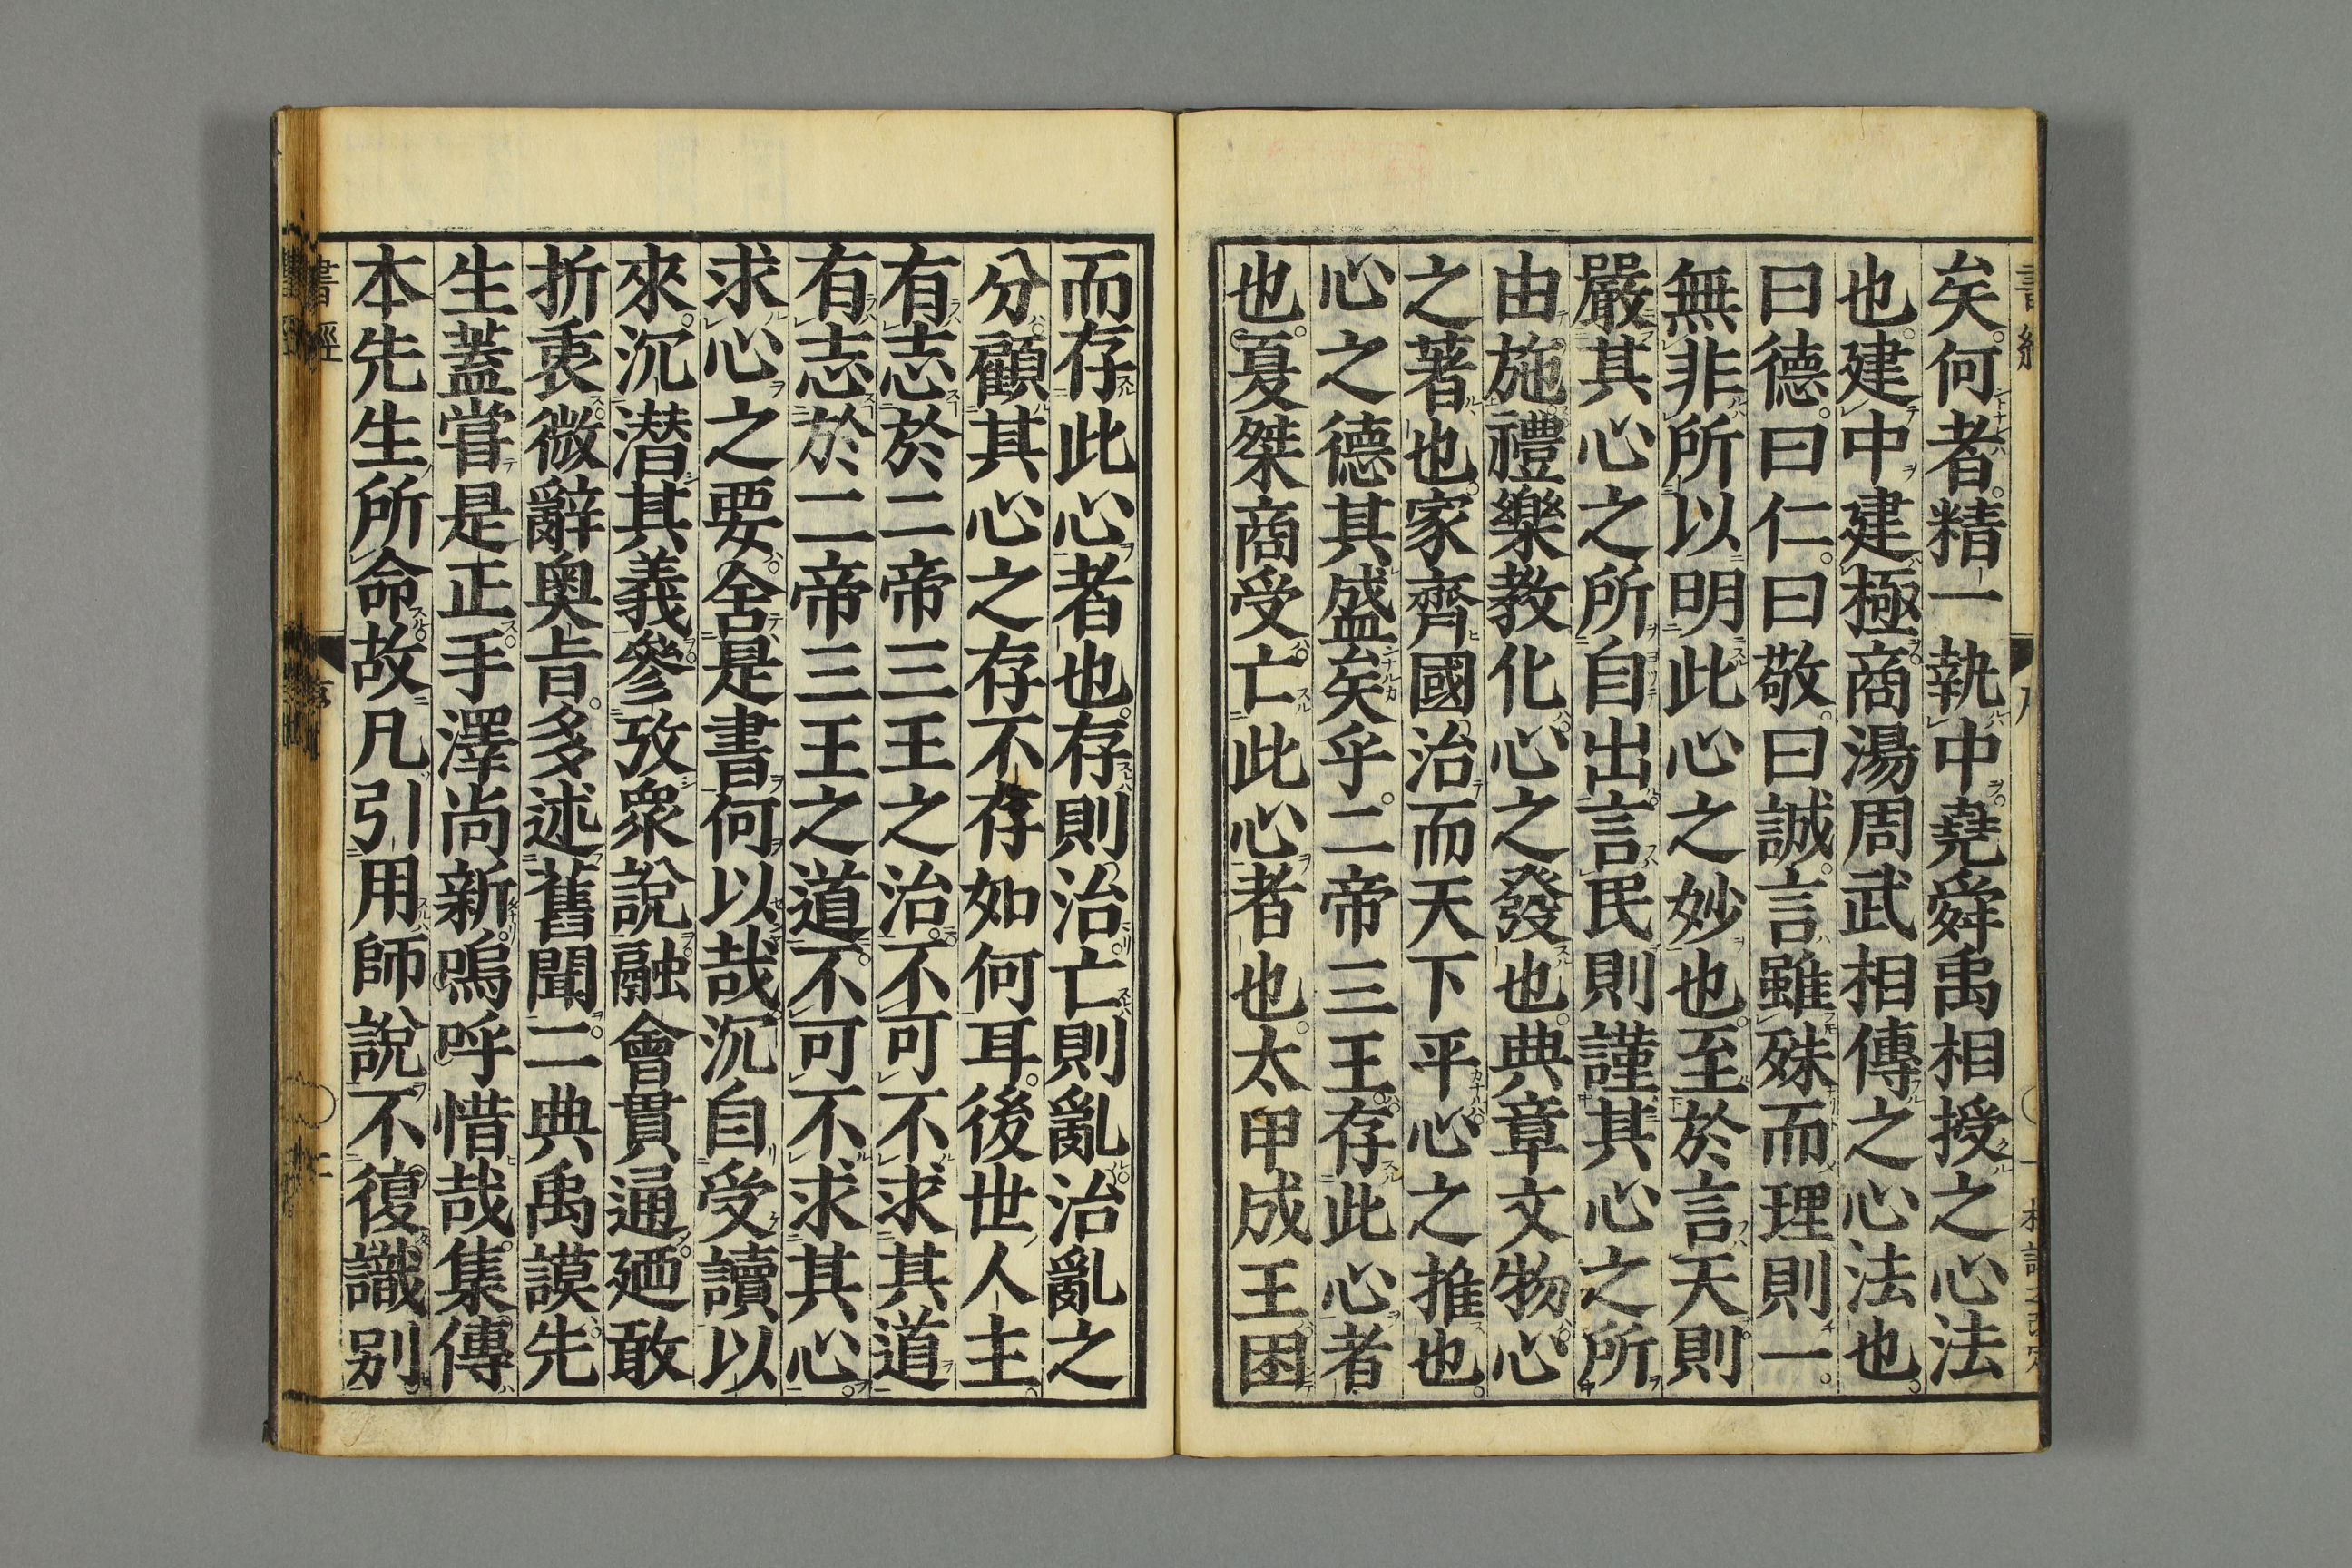 矣何者精一執中堯舜禹相授之心法
也建中建極商湯周武相傳之心法也
曰德曰仁曰敬曰誠言雖殊而理則一
無非所以明此心之妙也至於言天則
嚴其心之所自出言民則謹其心之所
由施禮樂教化心之發也典章文物心
之著也家齊國治而天下平心之推也
心之德其盛矣乎二帝三王存此心者
也夏桀商受亡此心者也太甲成王困
而存此心者也存則治亡則亂治亂之
分顧其心之存不存如何耳後世人主
有志於二帝三王之治不可不求其道
有志於二帝三王之道不可不求其心
求心之要舍是書何以哉沉自受讀以
來沉潜其義參攷衆說融會貫通廼敢
折衷微辭奥旨多述舊聞二典禹謨先
生蓋甞是正手澤尚新嗚呼惜哉集傳
本先生所命故凡引用師說不復識別
書經